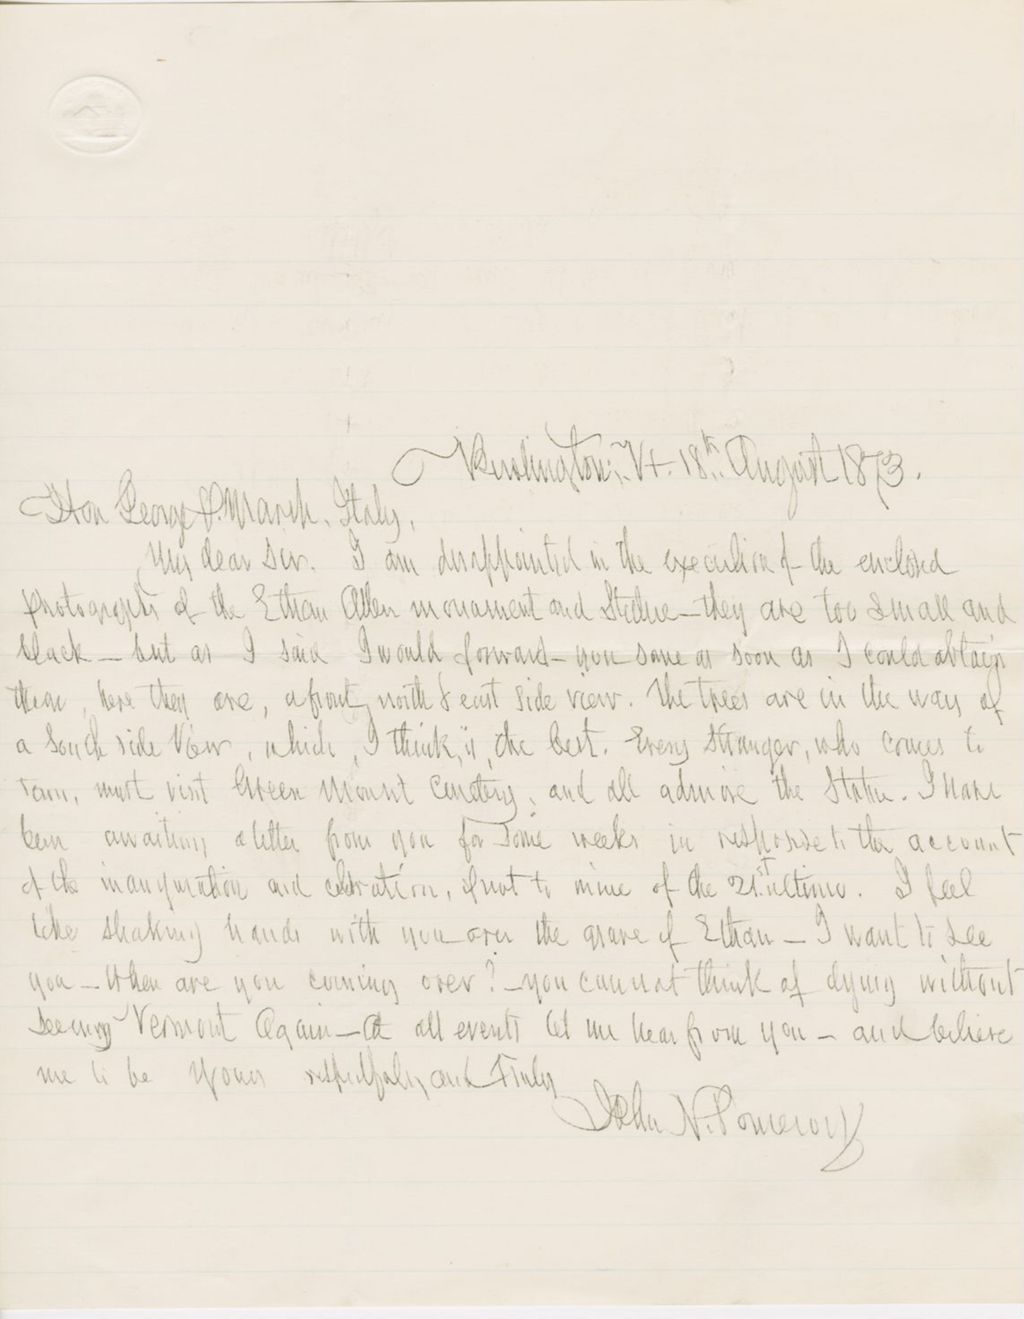 Burlington, Vt. 18th. August 1873.
Hon George P. Marsh, Italy,
My dear Sir. I am disappointed in the execution of the enclosed
photographs of the Ethan Allen monument and Statue—they are too small and
black—but as I said I would forward you some as soon as I could obtain
them, here they are, a front, north & east side view. The trees are in the way of
a South side View, which, I think, is, the best. Every Stranger, who comes to
town, must visit Green Mount Cemetery, and all admire the Statue. I have
been awaiting a letter from you for some weeks in response to the account
of the inauguration and celebration, if not to mine of the 21st ultimo. I feel
like shaking hands with you over the grave of Ethan—I want to see
you—When are you coming over?—you cannot think of dying without
seeing Vermont Again—At all events let me hear from you—and believe
me to be Yours respectfully and Truly
John N. Pomeroy